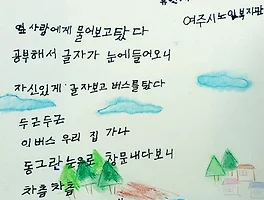 여주시노인복지관
옆 사람에게 물어보고탔다
공부해서 글자가 눈에들어오니
자신있게 글자보고 버스를탔다
두근두근
이버스 우리 집 가나
동그란눈으로 창문내다보니
차츰 차츰